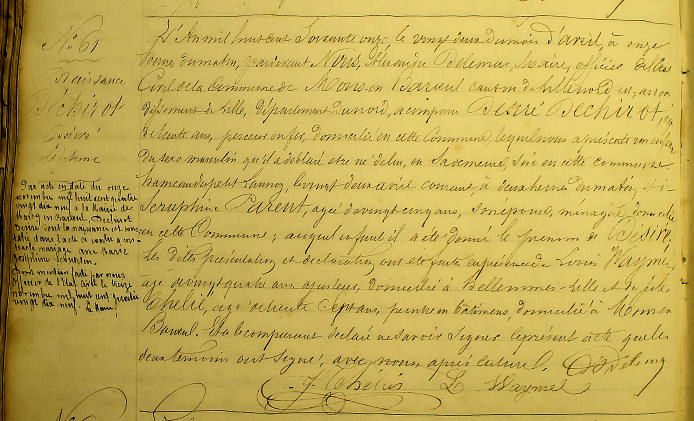 N° 61
Naissance
Béchirot
Désiré
légitime
L'An mil huit cent Soixante onze, le vingt deux du mois d'avril, à onze
heures du matin, par devant Nous, Delemer, Maire, officier de l'état
Civil de la Commune de Mons en Barœul canton de Lille nord est, arron
dissement de Lille, département du nord, a comparu Désiré Béchirot, âgé
de trente ans, perceur en fer, domicilié en cette Commune, lequel nous a présenté un enfant
du sexe masculin qu'il a déclaré être né de lui, en sa demeure, sise en cette commune
hameau du petit Lannoy, le vingt deux avril courant à deux heures du matin, et de
Séraphine Parent, agée de vingt cinq ans, son épouse, ménagère, domiciliée
en cette Commune; auquel enfant il a été donné le prénom de Désiré.
Les dites présentation et déclaration ont été faites en présence de Louis Waymel
agé de vingt quatre ans, ajusteur, domicilié à Hellemmes-Lille et de
agé de trente sept ans, peintre en bâtimens, domicilié à Mons en
Barœul. Et a le comparant déclaré ne savoir signer le présent acte que les
deux témoins ont signé, avec nous, après lecture. Delemer
L Waymel
Par acte en date du onze
novembre mil huit cent quatre
vingt dix neuf à la Mairie de
Mons en Barœul, Béchirot
Désiré dont la naissance est cons
tatée dans l'acte ci contre a con
tracté mariage avec Marie
Joséphine
Dont mention faite par nous
officier de l'état civil le treize
novembre mil huit cent quatre
vingt dix neuf. Le Maire,
N°